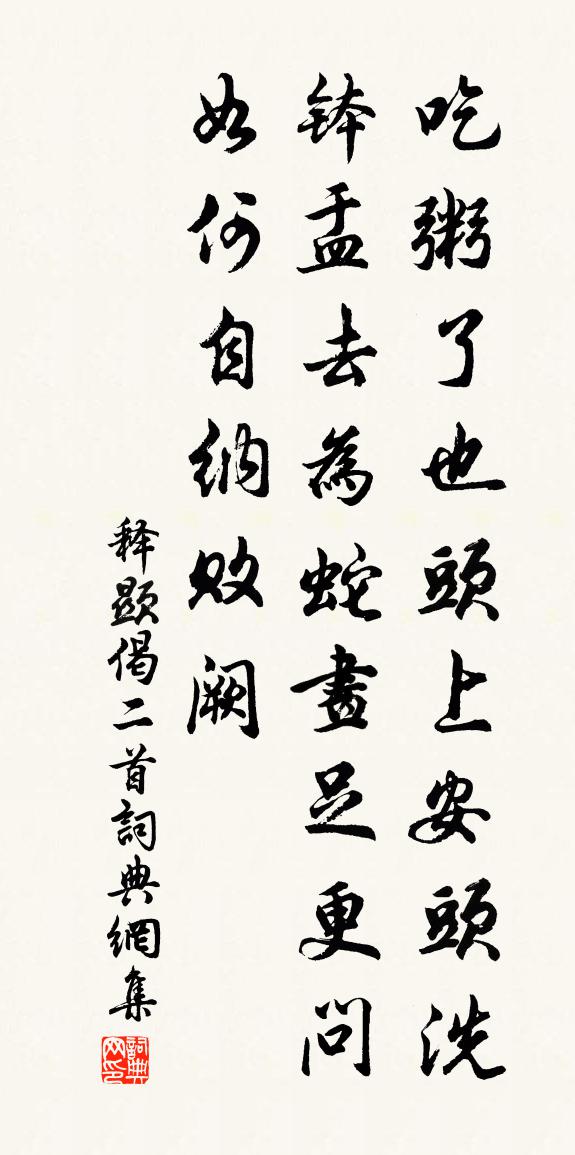 吃粥了也頭上安頭洗
鉢盂去為蛇畫足更問
如何自納敗闕
释顯偈二首詞典網集
詞典网印